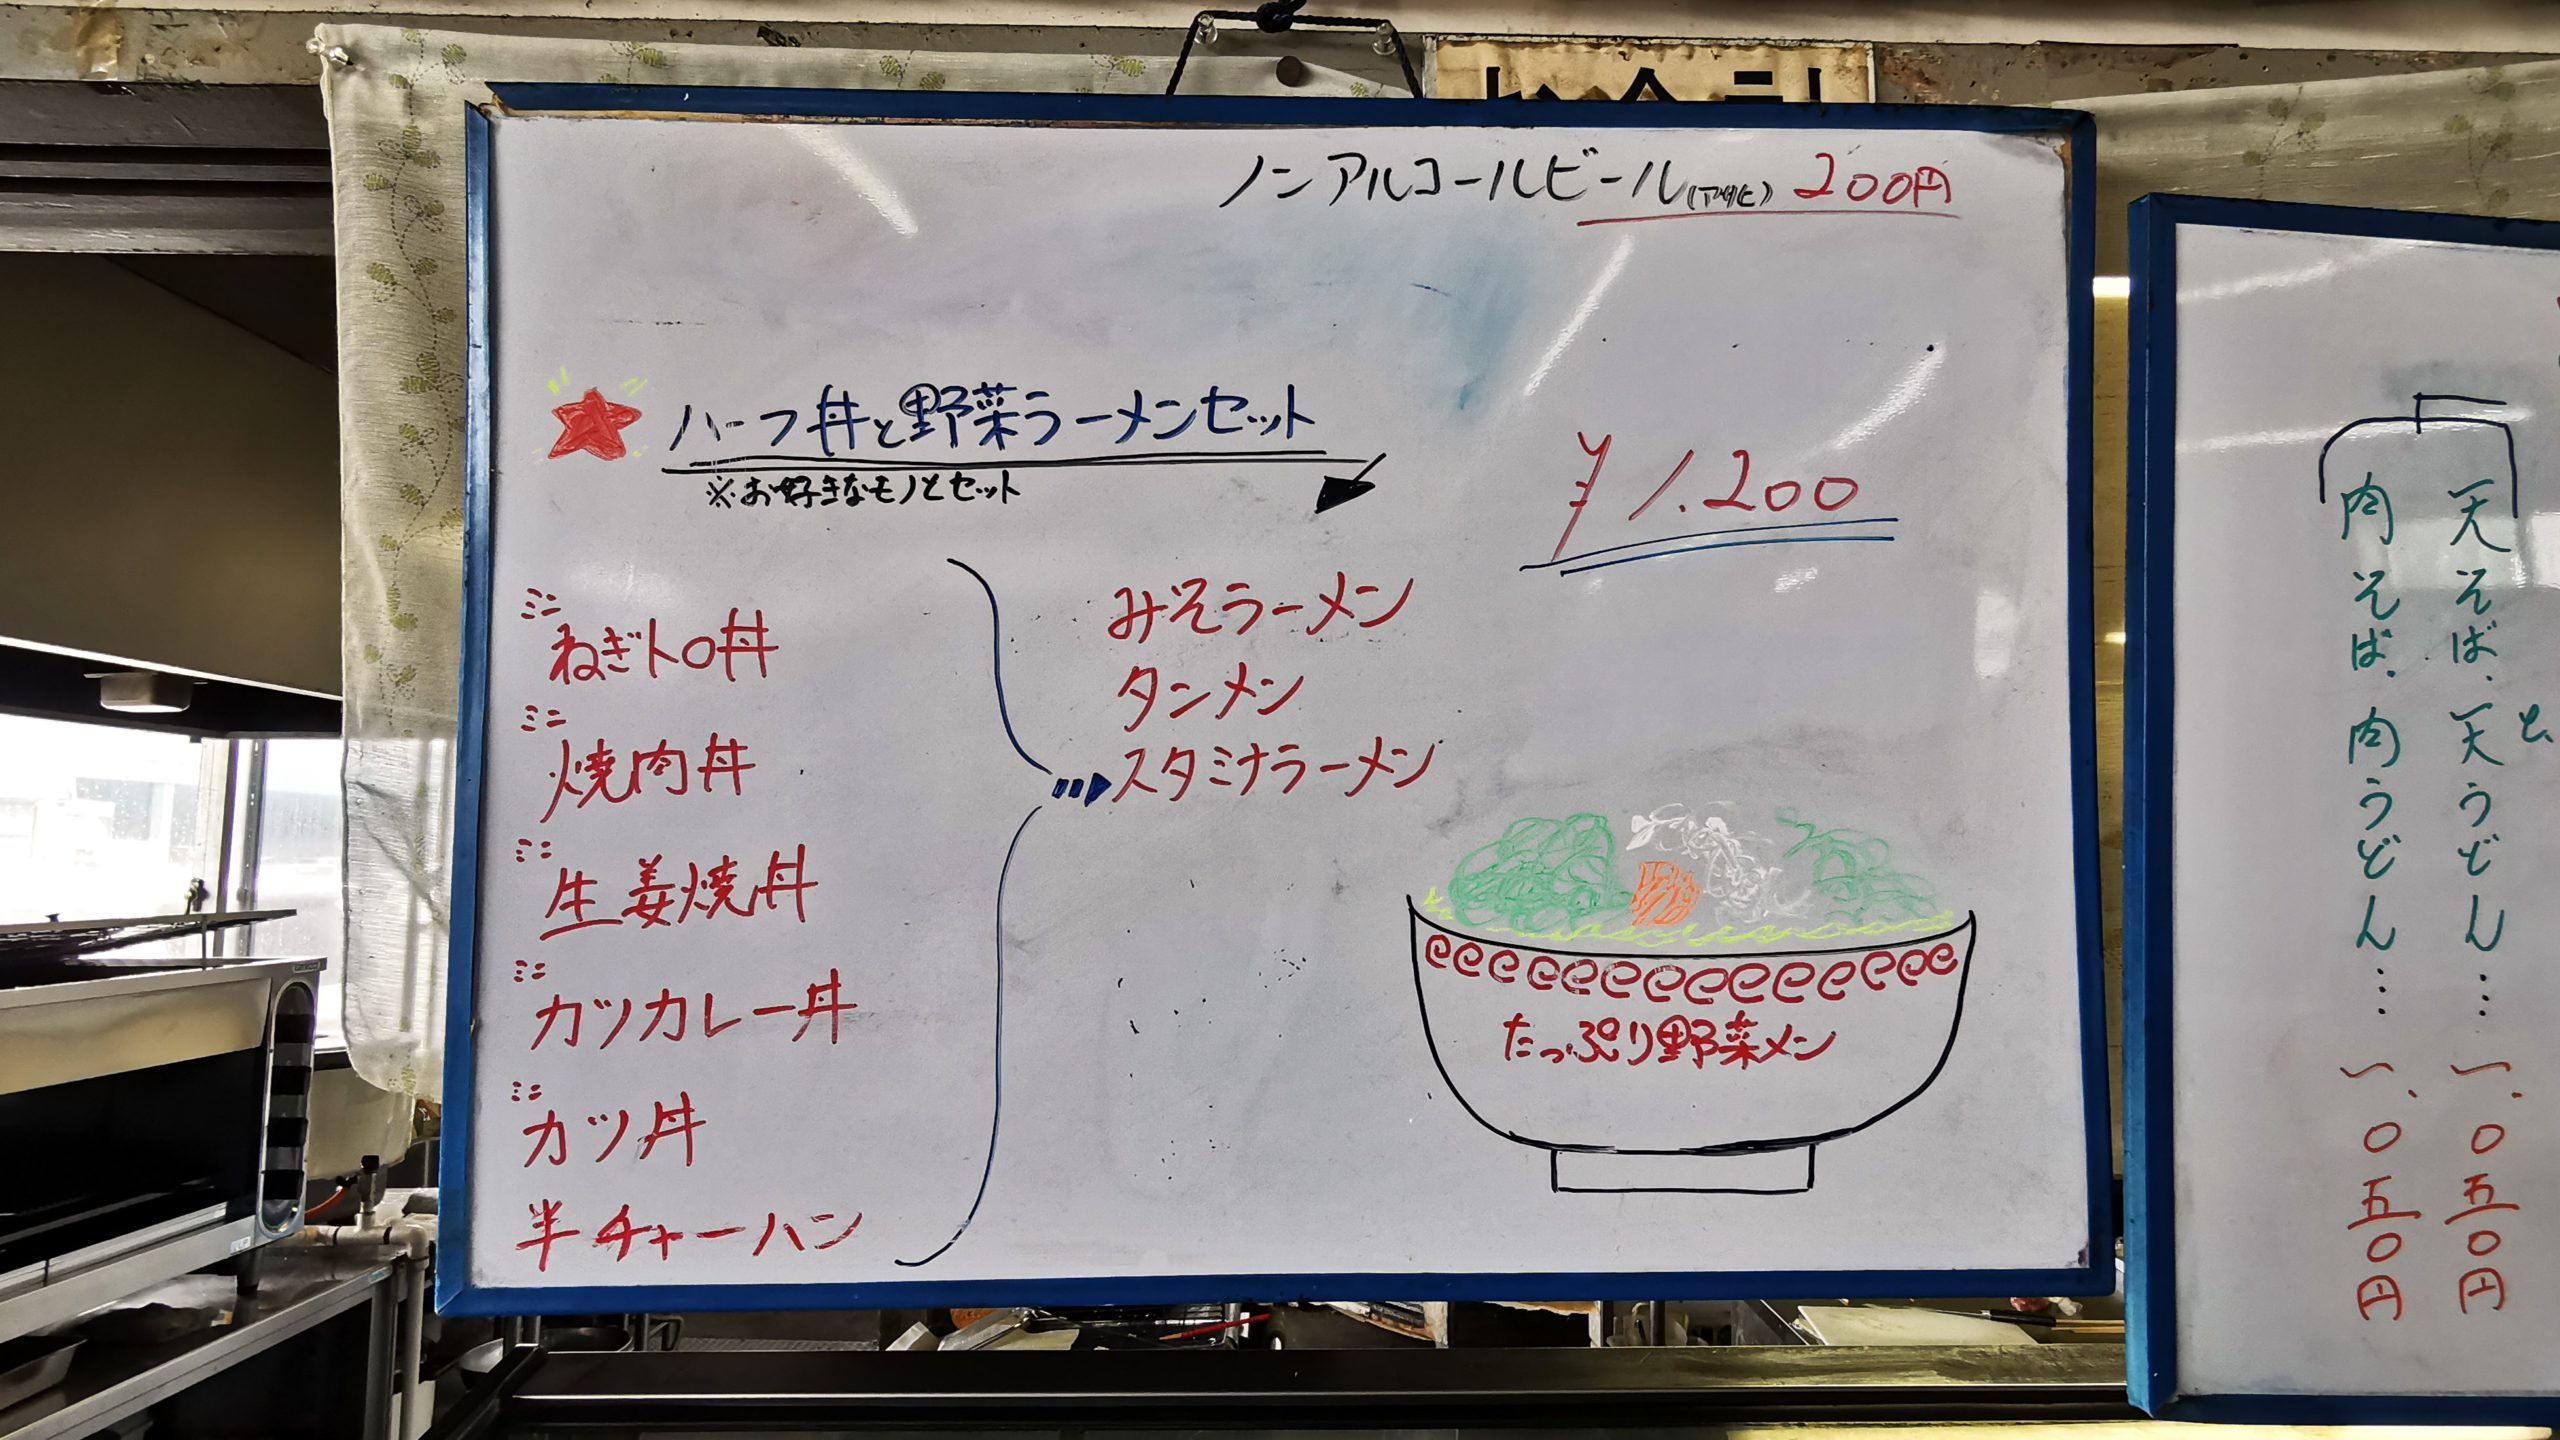 ノンアルコールビール(アサヒ) 200円
ハーフ丼と野菜ラーメンセット
※お好きなモノとセット
¥1.200
ミニ
ねぎトロ丼
ミニ
焼肉丼
ミニ
生姜焼丼
ミニ
カツカレー丼
ミニ
カツ丼
半チャーハン
みそラーメン
タンメン
スタミナラーメン
たっぷり野菜メン
と、
天そば、天うどん… 一、0五0円
肉そば、肉うどん… 一、0五0円